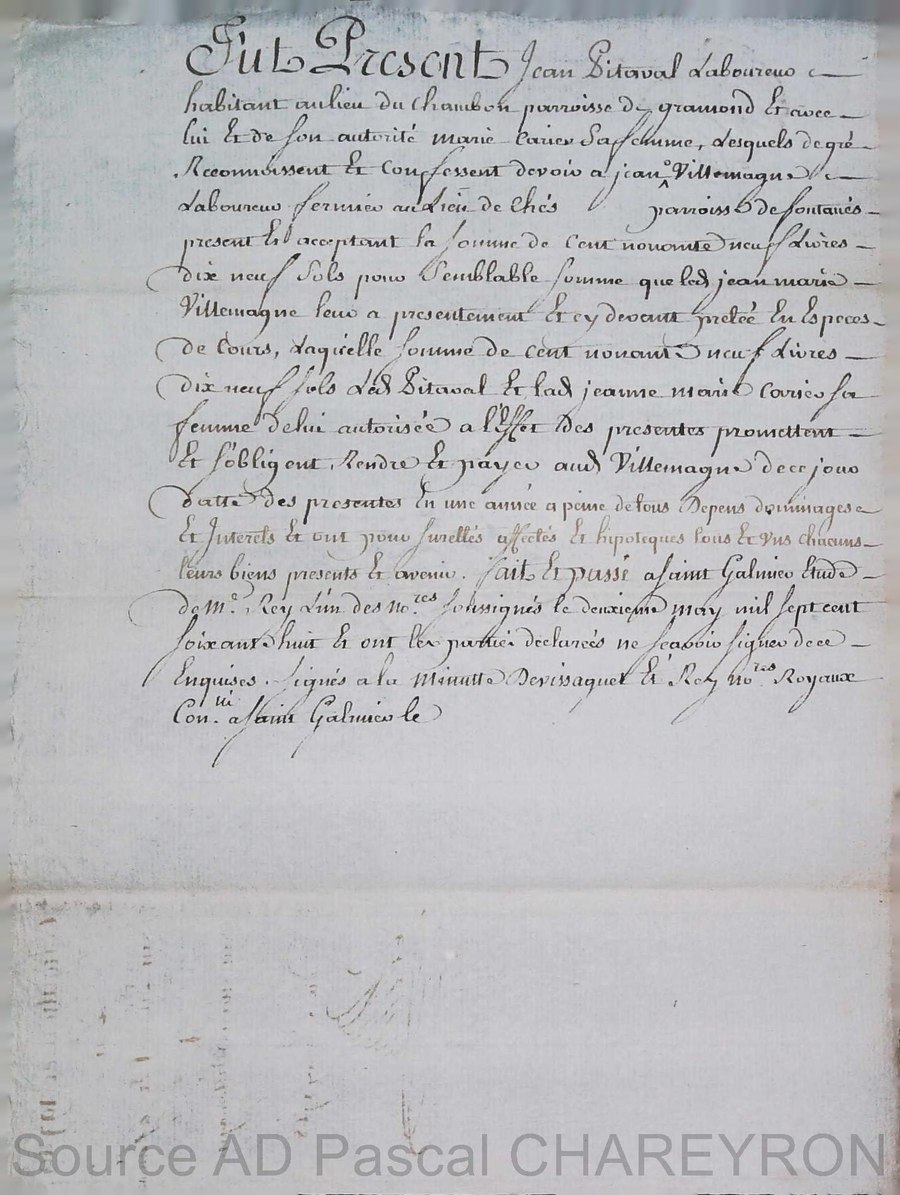 Fut Present Jean Pitaval Laboureur
habitant au lieu du Chambon parroisse de gramond Et avec
lui Et de son autorité marie Carier Sa femme, Lesquels de gré
Reconnoissent Et Confessent devoir a jean Villemagne
Laboureur fermier au Lieu de Chés parroisse de fontanés
present Et acceptant la somme de Cent nonante neuf Livres
dix neuf Sols pour Semblable somme que led jean marie
Villemagne leur a presentement Et cy devant pretée En Especes
de Cours, Laquelle somme de Cent nonante neuf Livres
dix neuf sols Led Pitaval Et lad jeanne marie Carier sa
femme de lui autorisée a l'Effet des presentes promettent
Et s'obligent Rendre Et payer aud Villemagne de ce jour
datte des presentes En une année a peine de tous Depens dommages
Et Interets Et ont pour suretés affectés Et hipoteques tous Et Uns chacuns
leurs biens presents Et avenir. fait Et passé a Saint Galmier Etude
de Me. Rey L'un des no.res soussignés le deuxieme may mil sept cent
soixante huit Et ont les parties declarées ne scavoir signer de ce
Enquises. signés a la Minutte Devissaguet Et Rey no.res Royaux
Con. a Saint Galmier le
Source AD Pascal CHAREYRON